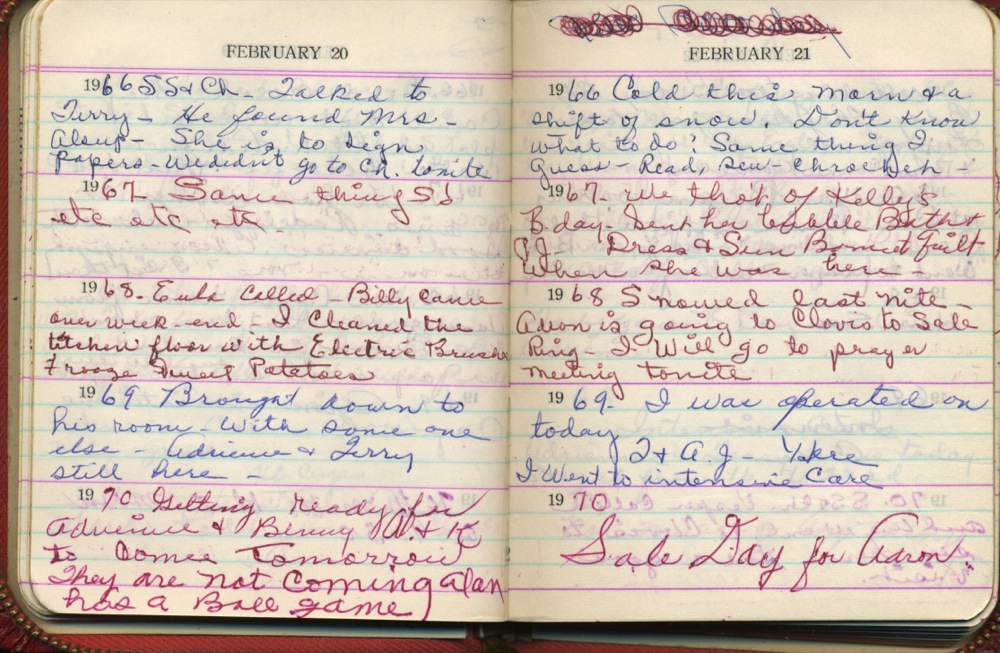 FEBRUARY 20
1966 SS & Ch. Talked to
Terry - He found Mrs -
Alsup - She is to sign
papers - We didn't go to Ch. tonite
1967. Same thing SS
etc etc etc -
1968. Eula called - Billy came
over week-end - I Cleaned the
kitchen floor with Electric Brush
Frooze Sweet Potatoes
1969 Brought down to
his room - With some one
else - Adrienne & Terry
still here -
1970. Getting ready for
Adrienne & Benny A. & K
to Come Tomorrow
They are not Coming Alan
has a Ball game)
FEBRUARY 21
1966 Cold this morn & a
shift of snow. Don't Know
what to do? Same thing I
guess - Read, sew - chrocheh -
1967. We thot of Kelly's
B.day - Sent her bubble Bath &
P.J. - Dress & Sun Bonnet
When She was here -
1968 Snowed last nite -
Aaron is going to Clovis to Sale
Ring - I Will go to prayer
meeting tonite
1969. I was operated on
today
T & A.J -
I Went to intensive Care
1970
Sale Day for Aaron